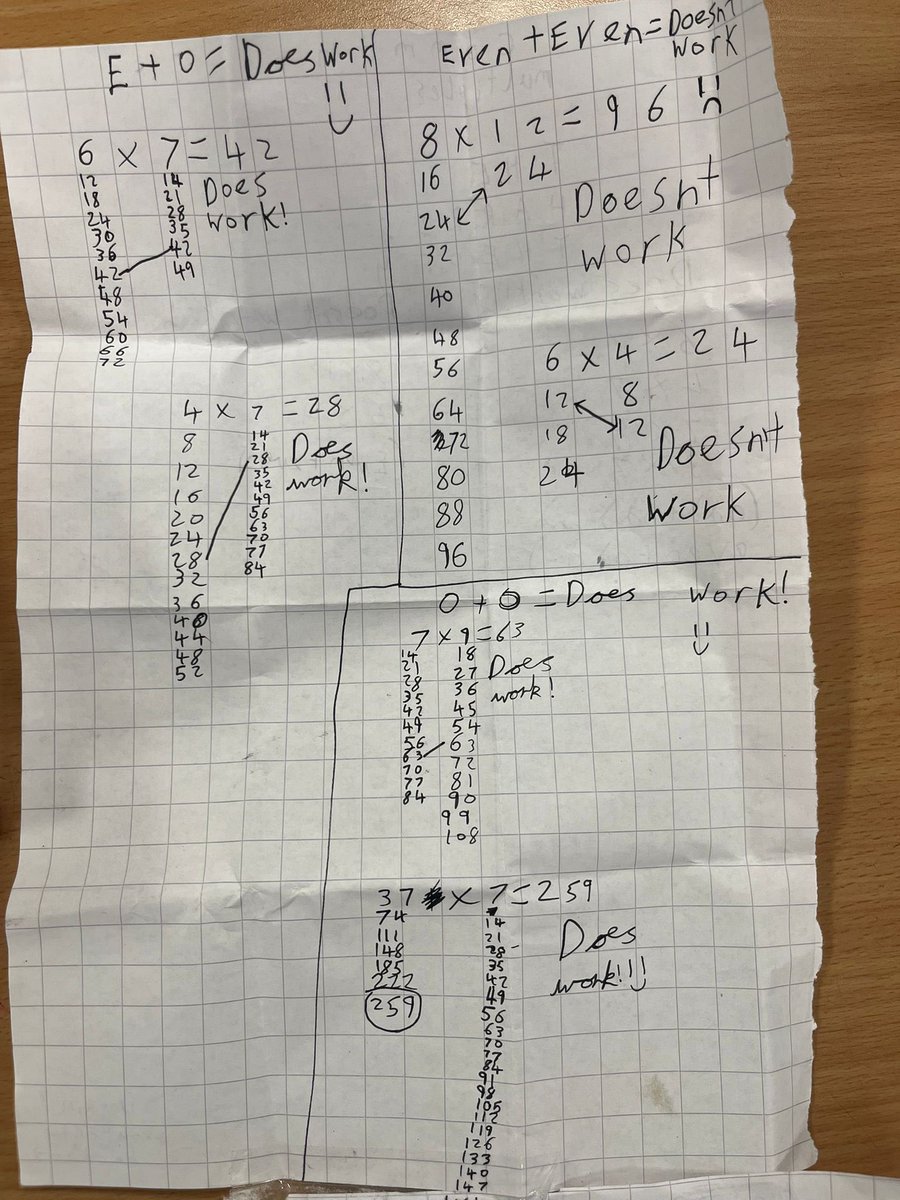 E + O = Does Work
6 × 7 = 42
12 14 Does
18 21 work!
24 28
30 35
36 42
42 49
48
54
60
66
72
4 × 7 = 28
8 14 Does
12 21 work!
16 28
20 35
24 42
28 49
32 56
36 63
40 70
44 77
48 84
52
Even + Even = Doesn't
work
8 × 12 = 96
16 24
24 Doesnt
32 work
40
48
56
64
72
80
88
96
6 × 4 = 24
12 8
18 12 Doesn't
24 work
O + O = Does work!
7 × 9 = 63
14 18 Does
21 27 work!
28 36
35 45
42 54
49 63
56 72
63 81
70 90
77 99
84 108
37 × 7 = 259
74 14 Does
111 21 work!!!
148 28
185 35
222 42
259 49
56
63
70
77
84
91
98
105
112
119
126
133
140
147